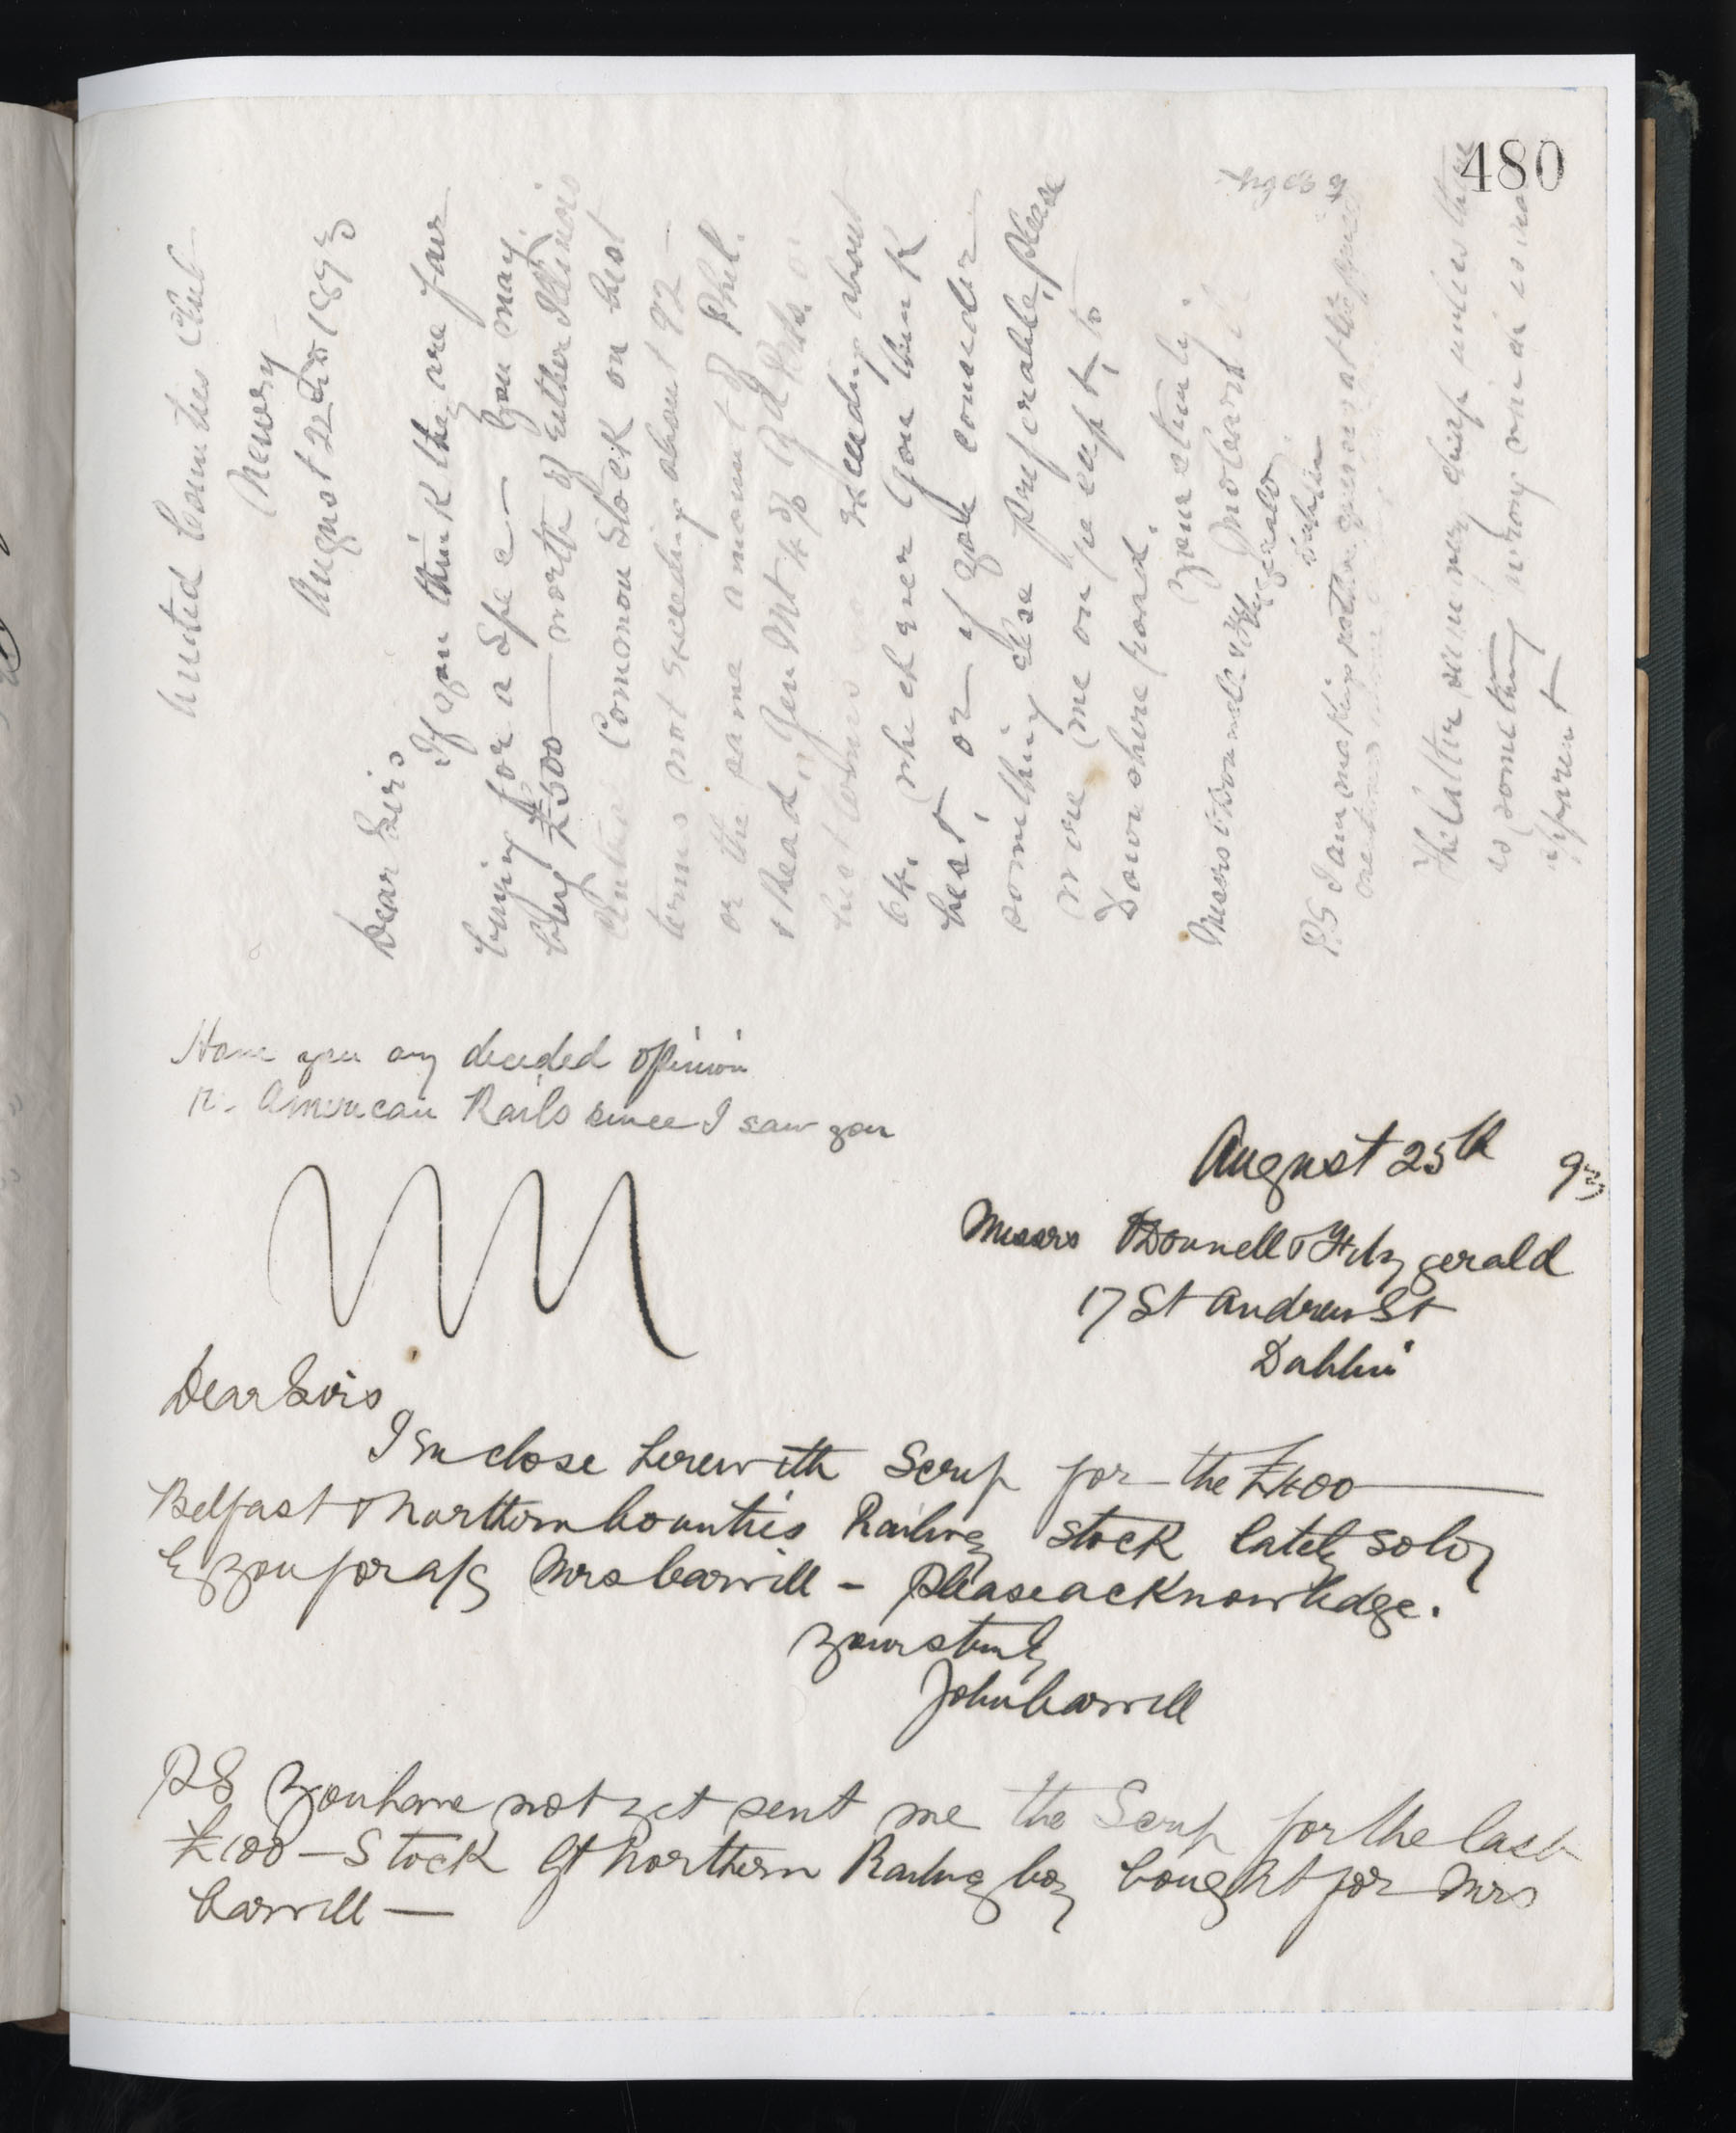 480
United Counties Club
Newry
August 22nd 1893
Dear Sirs
If you think they are fair
buying for a Spec — you may
buy £500 — worth of either Illinois
Central Common Stock on best
terms not exceeding about 92 —
or the same amount of Phil.
& Read. Gen Mt 4%
best terms exceeding about
64, whichever you think
best, or if you consider
something else preferable, please
wire me on receipt, to
Downshire road.
Yours truly
Messrs O'Donnell & Fitzgerald
Dublin
PS I am making
The latter seems very cheap unless there
is something wrong which is not
apparent
Have you any decided opinion
re. American Rails since I saw you
August 25th 93
Messrs O'Donnell & Fitzgerald
17 St Andrew St
Dublin
Dear Sirs
I enclose herewith Scrip for the £400 —
Belfast & Northern Counties Railway Stock lately sold
by you for a/c Mrs Carvill – Please acknowledge.
Yours truly
John Carvill
PS You have not yet sent me the Scrip for the last
£100 – Stock Gt Northern Railway Coy bought for Mrs
Carvill —